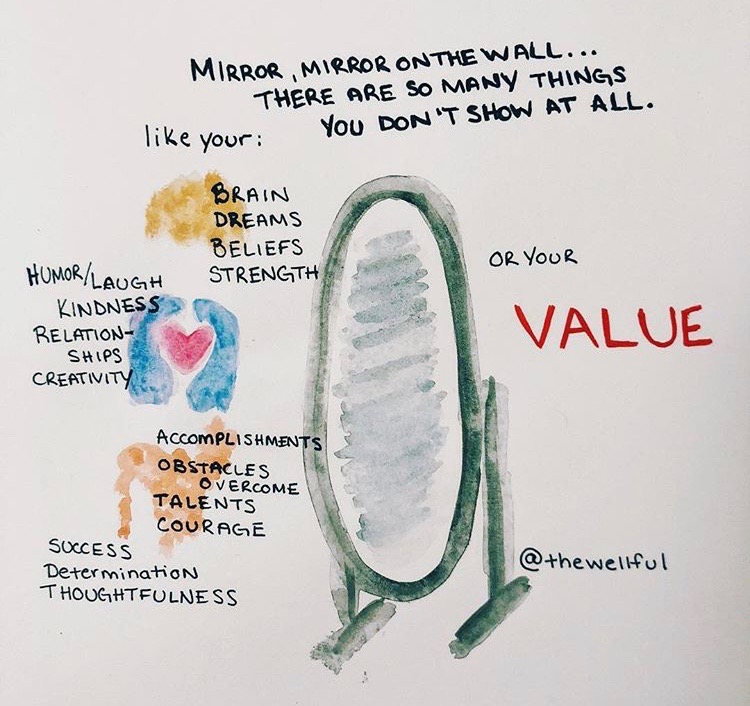 MIRROR, MIRROR ON THE WALL...
THERE ARE SO MANY THINGS
YOU DON'T SHOW AT ALL.
like your:
BRAIN
DREAMS
BELIEFS
STRENGTH
HUMOR/LAUGH
KINDNESS
RELATION-
SHIPS
CREATIVITY
ACCOMPLISHMENTS
OBSTACLES
OVERCOME
TALENTS
COURAGE
SUCCESS
DeterminatioN
THOUGHTFULNESS
OR YOUR
VALUE
@thewellful